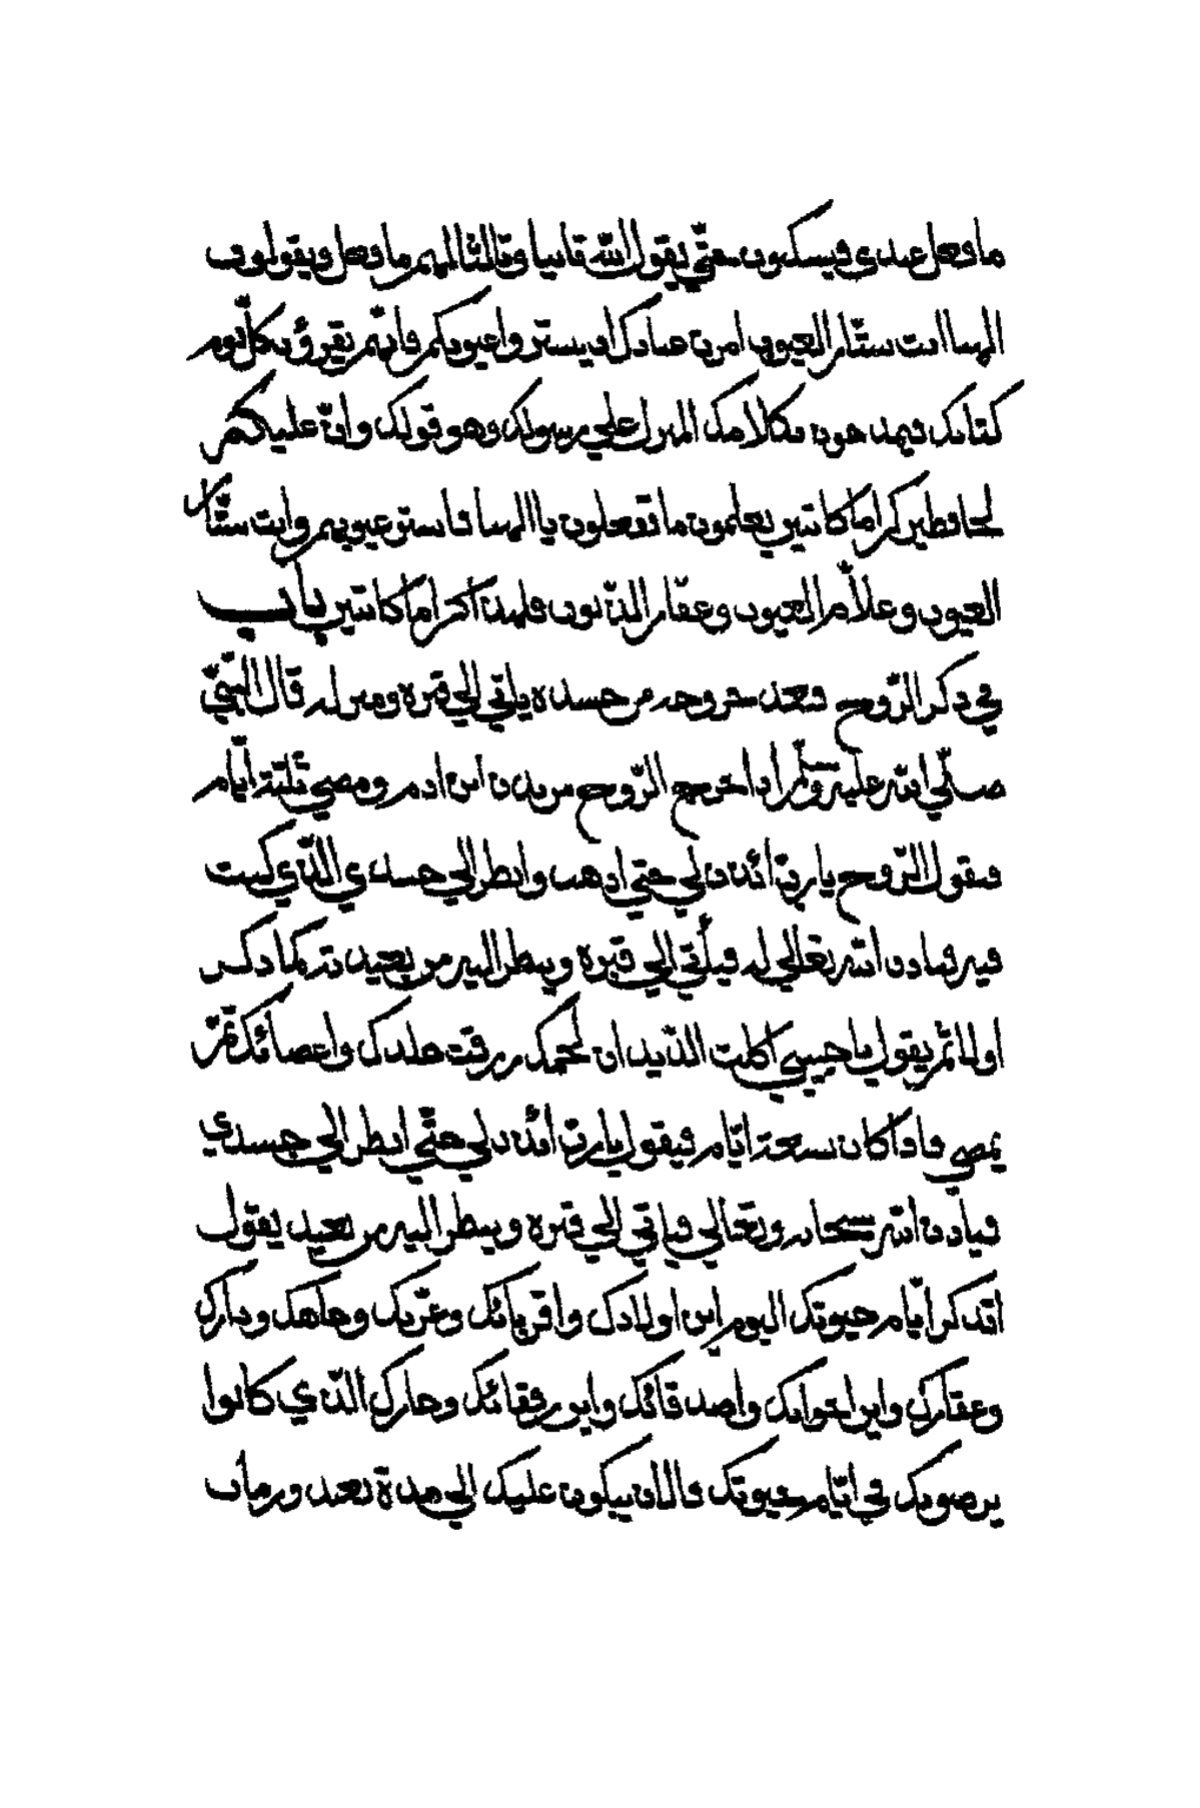 ما فعل عبدي فيسكتون حتّي يقول الله ثانيا وثالثا لهم ما فعل ويقولون
الهنا انت ستّار العيوب امرت عبادك ان يستروا عيوبكم فانّهم يقرؤن كلّ يوم
كتابك ويمدحون بكلامك المنزل علي رسولك وهو قولك وانّ عليكم
لحافظين كراما كاتبين يعلمون ما تفعلون يا الهنا فاستر عيوبهم وانت ستّار
العيوب وعلاّم العيوب وغفّار الذّنوب فلهذا كراما كاتبين باب
في ذكر الرّوح فبعد خروجه من جسده ياتي الي قبره ومنزله قال النّبيّ
صلّي الله عليه وسلّم اذا خرج الرّوح من بدن ابن ادم ومضي ثلثة ايّام
فيقول الرّوح يا ربّ ائذن لي حتي اذهب وانظر الي جسدي الّذي كنت
فيه فياذن الله تعالي له فيأتي الي قبره وينظر اليه من بعيد
اولا ثمّ يقول يا حبيبي اكلت الدّيدان لحمك ومزّقت جلدك واعضائك ثمّ
يمضي فاذا كان سبعة ايّام فيقول يا ربّ ائذن لي حتّي انظر الي جسدي
فياذن الله سبحانه وتعالي فياتي الي قبره وينظر اليه من بعيد يقول
اتذكر ايّام حيوتك اليوم اين اولادك واقربائك وعزّتك وجاهك ودارك
وعقارك واين اخوانك واصدقائك واين رفقائك وجارك الّذي كانوا
يرضونك في ايّام حيوتك فالان يبكون عليك الي مدة بعد وزمان